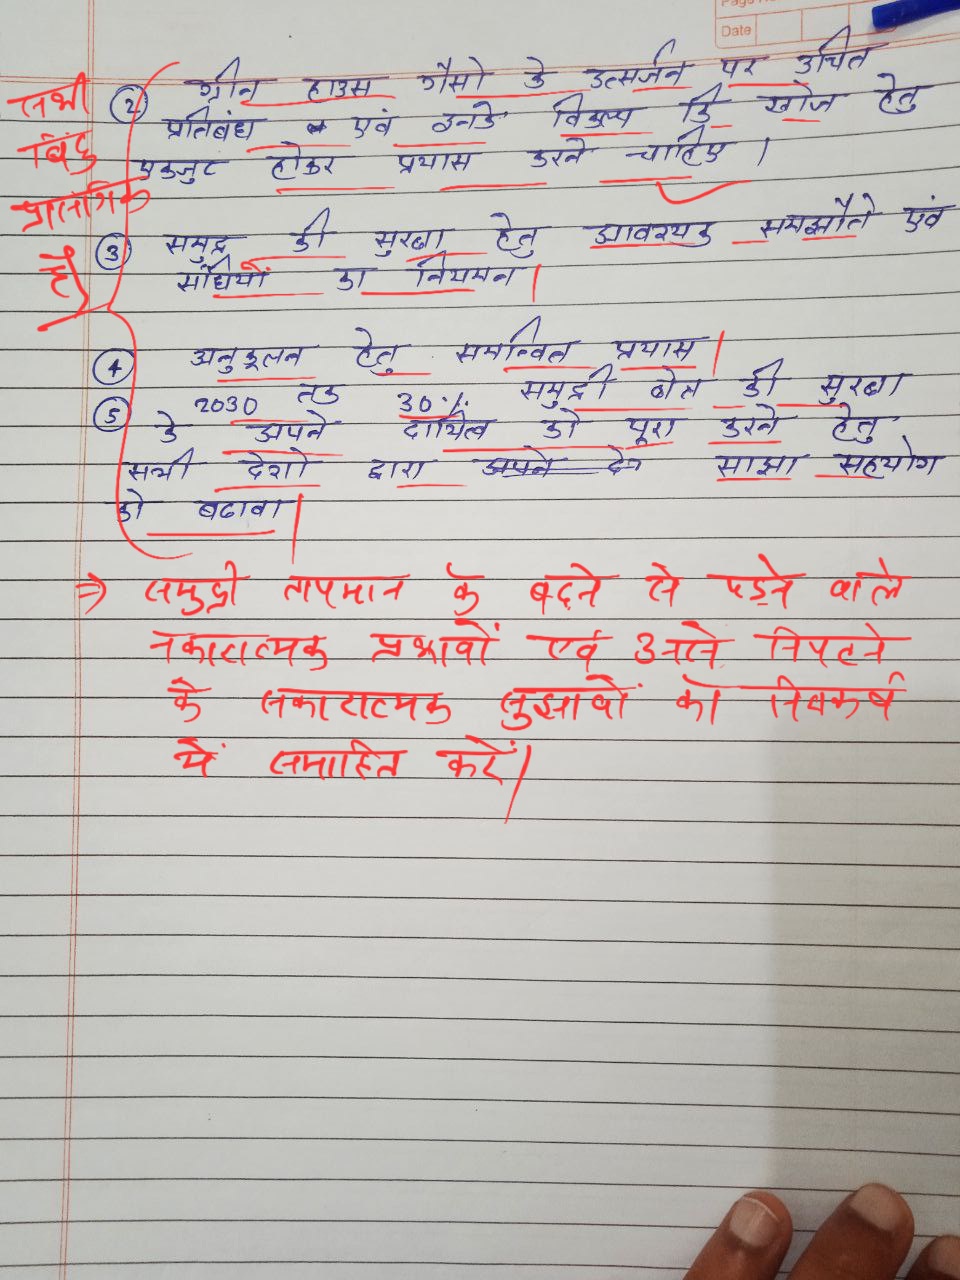 Date
② ग्रीन हाउस गैसो के उत्सर्जन पर उचित
प्रतिबंध एवं उनके विकल्प कि खोज हेतु
एकजुट होकर प्रयास करने चाहिए ।
③ समुद्र की सुरक्षा हेतु आवश्यक समझौते एवं
संधियों का नियमन।
④ अनुकूलन हेतु समन्वित प्रयास।
⑤ 2030 तक 30% समुद्री क्षेत्र की सुरक्षा
के अपने दायित्व को पूरा करने हेतु
सभी देशो द्वारा अपने देश साझा सहयोग
को बढावा।
सभी
बिंदु
प्रासंगिक
हैं।
⇒ समुद्री तापमान के बढ़ने से पड़ने वाले
नकारात्मक प्रभावों एवं उनसे निपटने
के सकारात्मक सुझावों को निष्कर्ष
में समाहित करें।